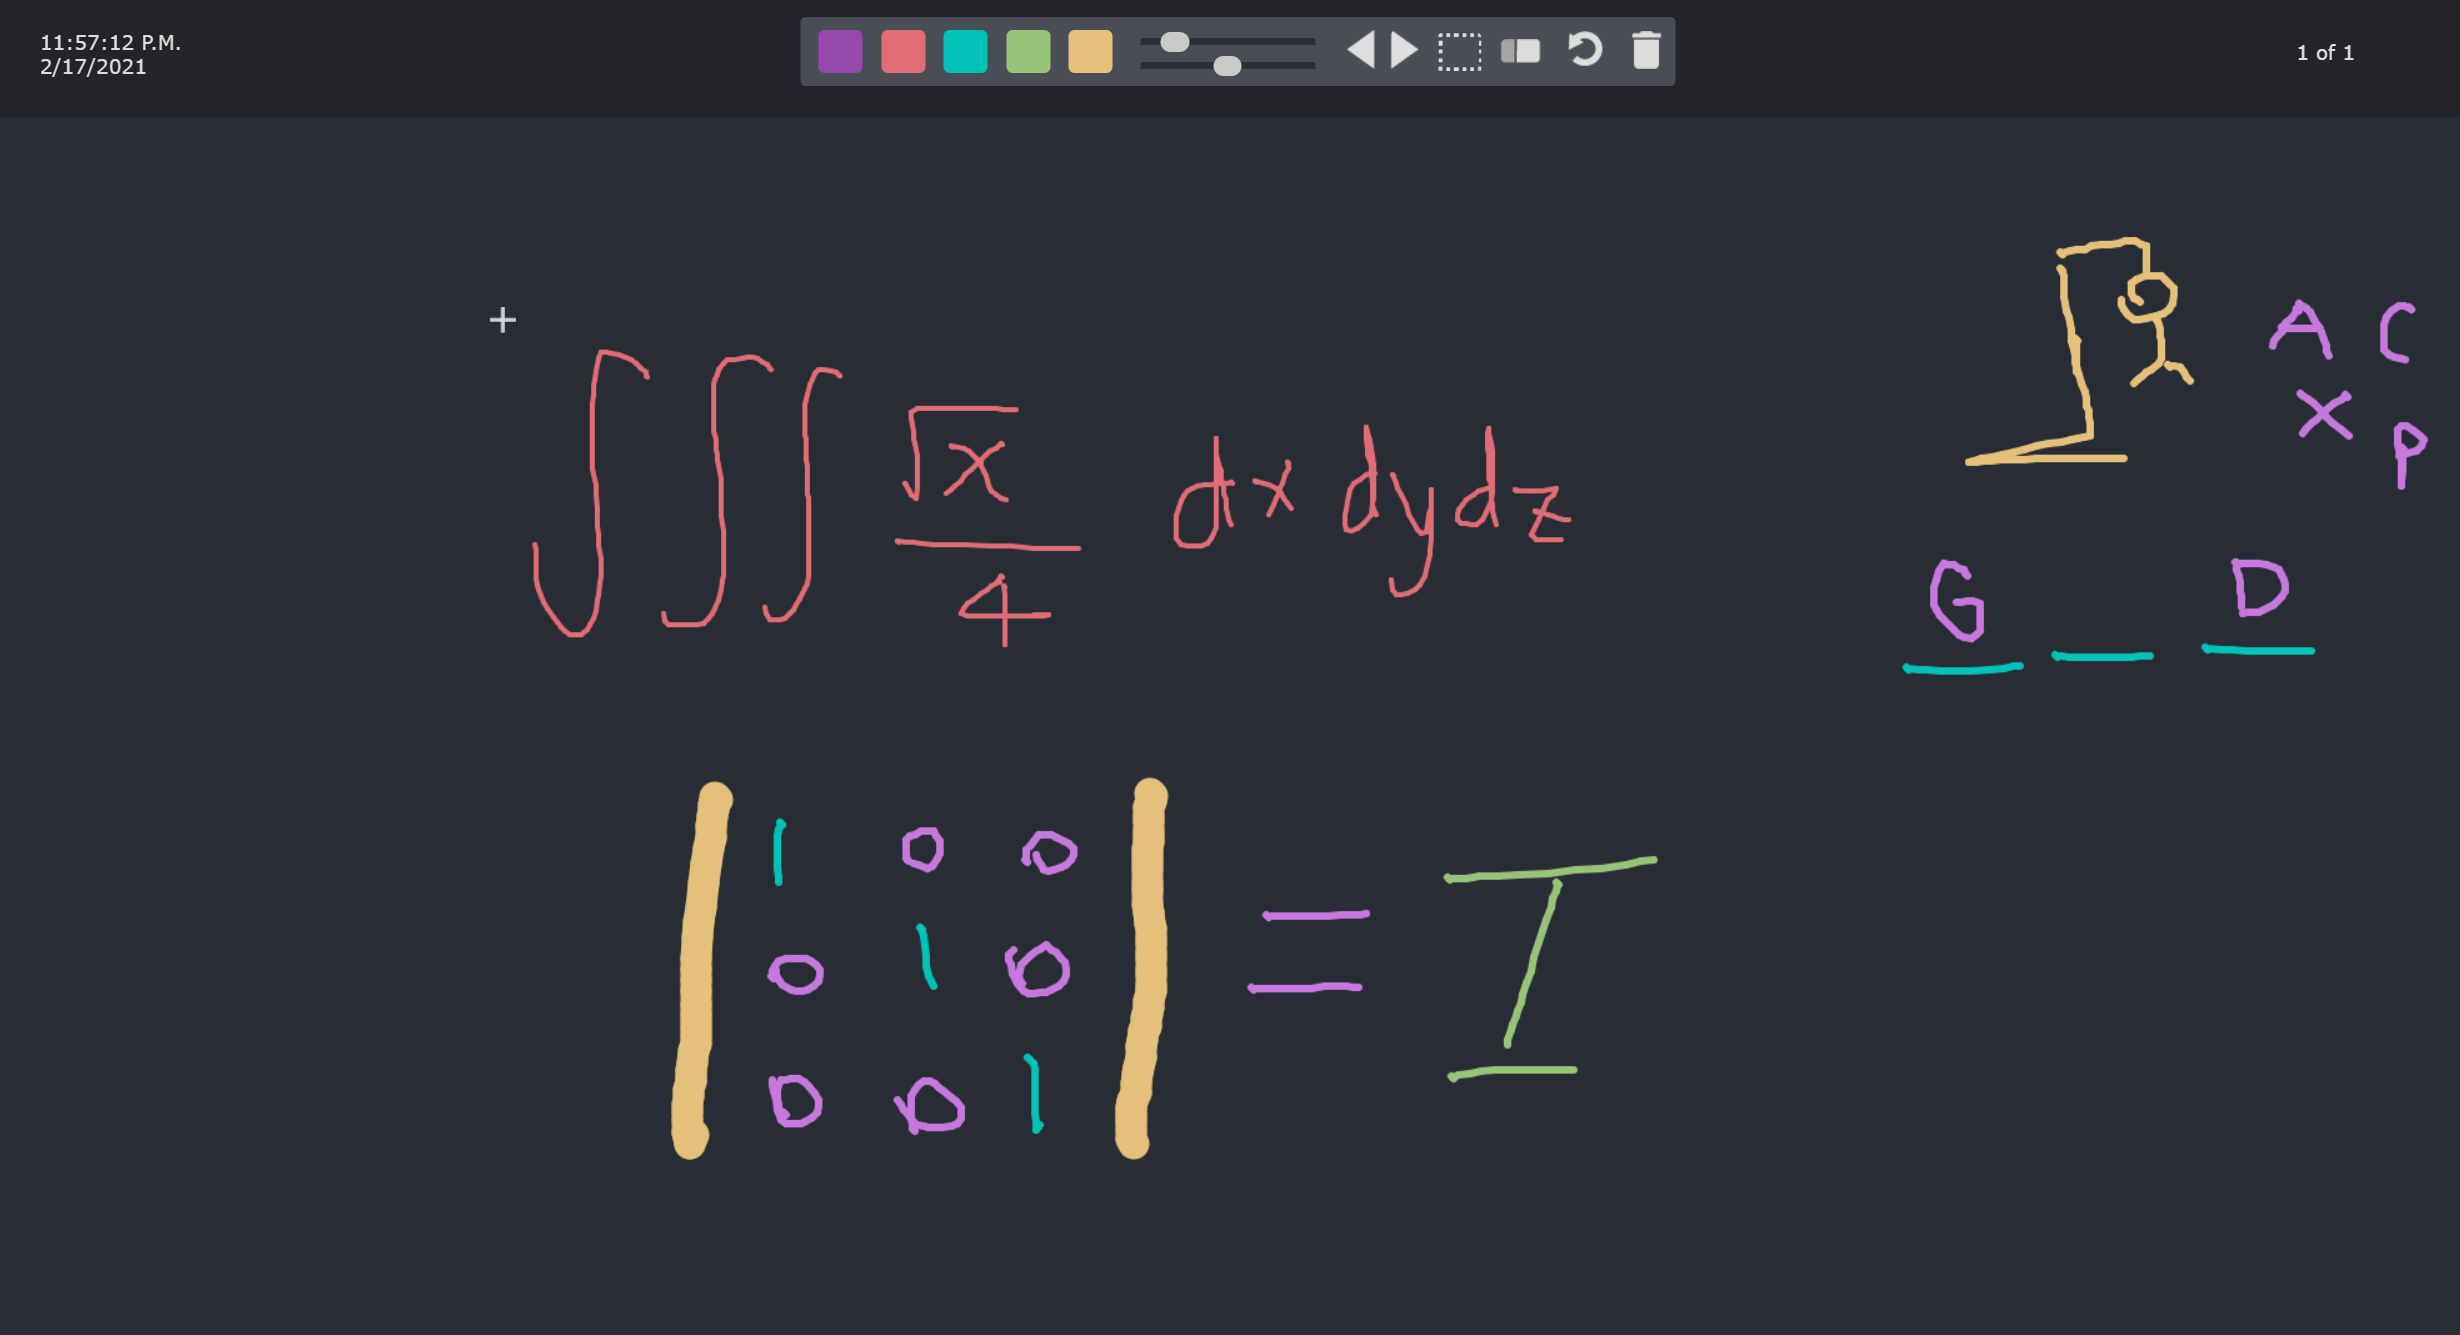 11:57:12 P.M.
2/17/2021
1 of 1
∫∫∫ √x/4 dx dy dz
A C
X P
G _ D
| 1 0 0 |
| 0 1 0 | = I
| 0 0 1 |